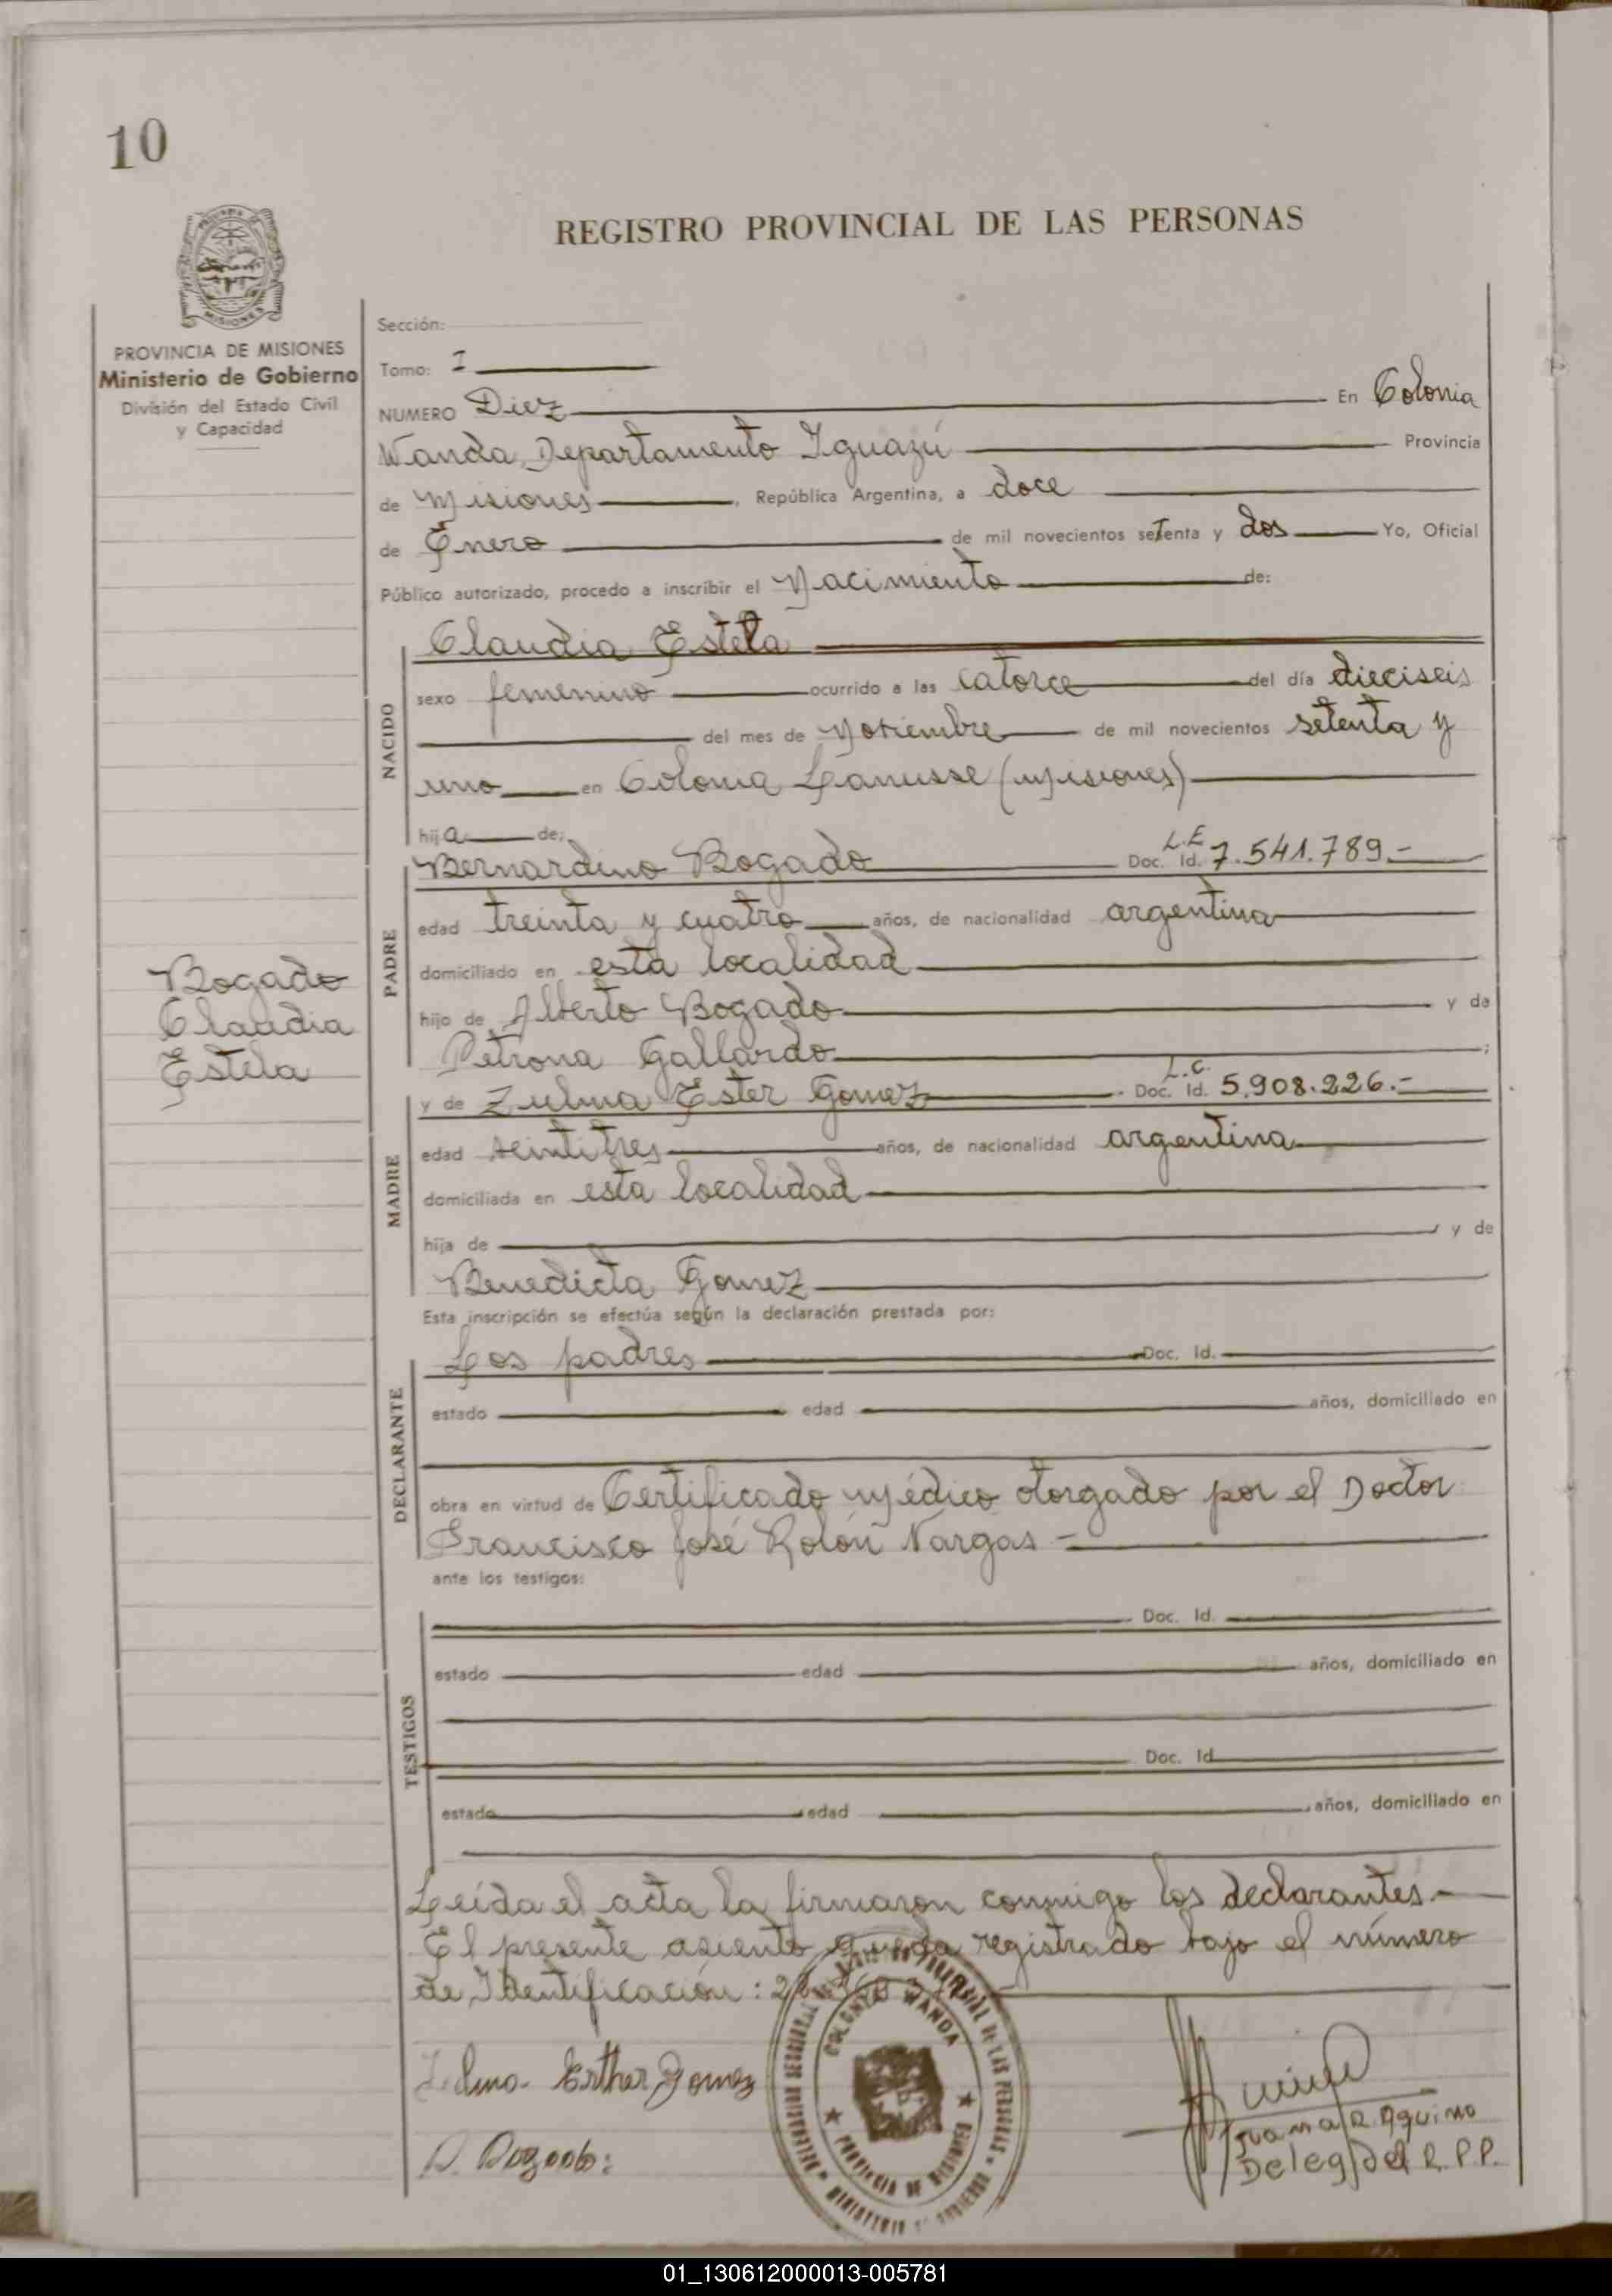 10
REGISTRO PROVINCIAL DE LAS PERSONAS
MISIONES
PROVINCIA DE MISIONES
Ministerio de Gobierno
División del Estado Civil
y Capacidad
Sección:
Tomo: I
NUMERO Diez En Colonia
Wanda, Departamento Iguazú Provincia
de Misiones, República Argentina, a doce
de Enero de mil novecientos setenta y dos Yo, Oficial
Público autorizado, procedo a inscribir el Nacimiento de:
NACIDO
Claudia Estela
sexo femenino ocurrido a las catorce del día dieciseis
del mes de Noviembre de mil novecientos setenta y
uno en Colonia Lanusse (Misiones)
hija de:
PADRE
Bernardino Bogado Doc. Id. L.E 7.541.789.-
edad treinta y cuatro años, de nacionalidad argentina
domiciliado en esta localidad
hijo de Alberto Bogado y de
Petrona Gallardo ;
Bogado
Claudia
Estela
MADRE
y de Zulma Ester Gomez Doc. Id. L.C. 5.908.226.-
edad veintitres años, de nacionalidad argentina
domiciliada en esta localidad
hija de y de
Benedicta Gomez
Esta inscripción se efectúa según la declaración prestada por:
DECLARANTE
Los padres Doc. Id.
estado edad años, domiciliado en
obra en virtud de Certificado Médico otorgado por el Doctor
Francisco José Rolón Vargas -
ante los testigos:
TESTIGOS
Doc. Id.
estado edad años, domiciliado en
Doc. Id
estado edad años, domiciliado en
Leída el acta la firmaron conmigo los declarantes.-
El presente asiento queda registrado bajo el número
de Identificación:
COLONIA WANDA
PROVINCIA DE MISIONES
Zulma Esther Gomez
B. Bogado:
Juana R. Aquino
Deleg del R.P.P.
01_130612000013-005781